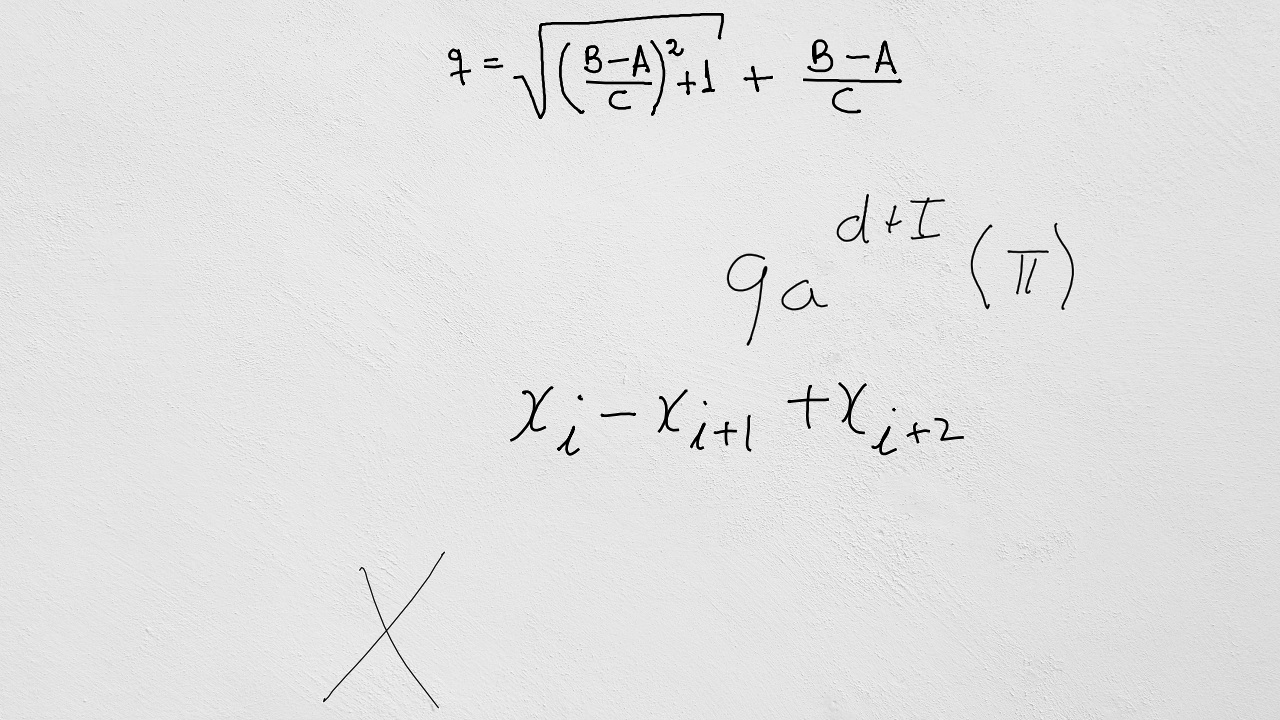 q = \sqrt{\left(\frac{B-A}{C}\right)^2+1} + \frac{B-A}{C}
qa^{d+I}(\pi)
x_i - x_{i+1} + x_{i+2}
X